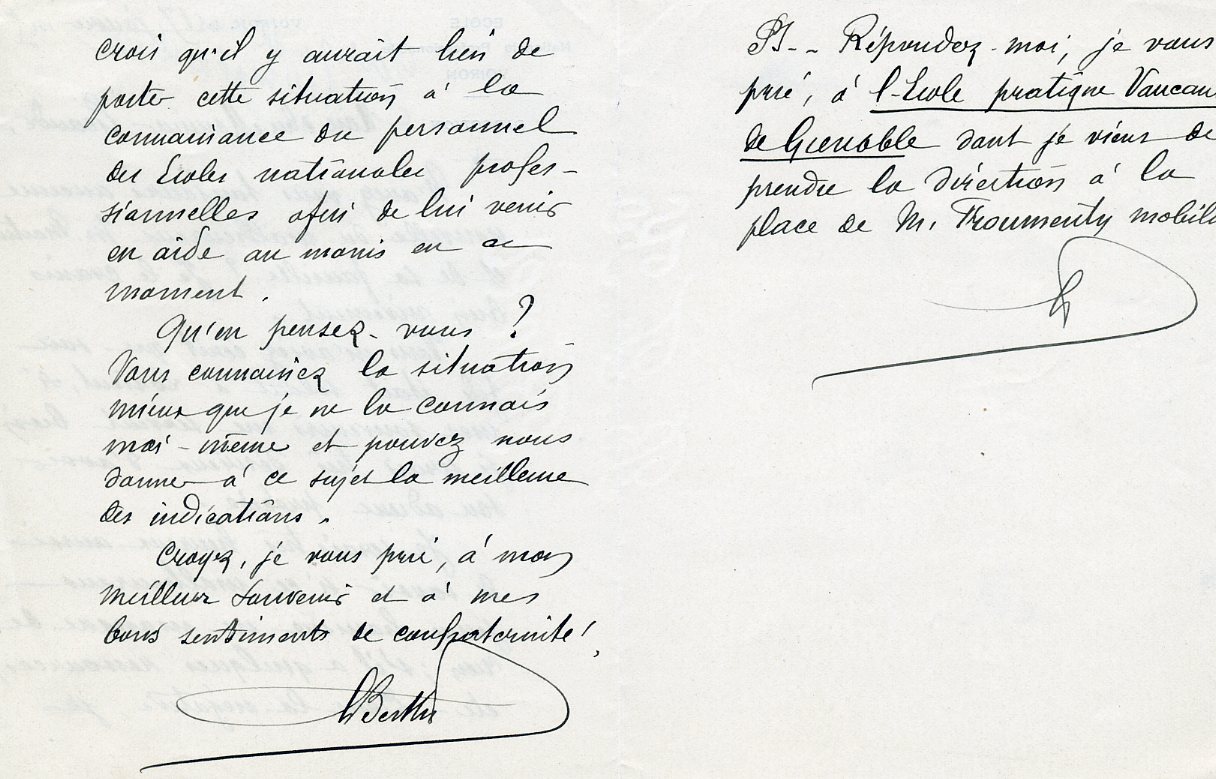 crois qu'il y aurait lieu de
porter cette situation à la
connaissance du personnel
des Écoles nationales profes-
sionnelles afin de lui venir
en aide au moins en ce
moment.
Qu'en pensez-vous ?
Vous connaissez la situation
mieux que je ne la connais
moi-même et pouvez nous
donner à ce sujet la meilleure
des indications.
Croyez, je vous prie, à mon
meilleur souvenir et à mes
bons sentiments de confraternité !
PS -- Répondez-moi, je vous
prie, à l'École pratique Vaucan
de Grenoble dont je viens de
prendre la direction à la
place de M. Froumenty mobilis